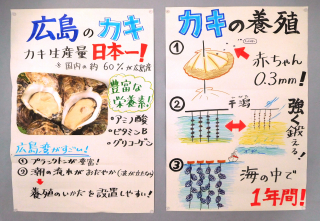 広島のカキ
カキ生産量日本一!
※国内の約60%が広島産
豊富な
栄養素!
・アミノ酸
・ビタミンB
・グリコーゲン
広島湾がすごい!
①プランクトンが豊富!
②潮の流れがおだやか(波が立たない)
養殖のいかだを設置しやすい!
カキの養殖
①
赤ちゃん
0.3mm!
②
干潟
強く鍛える!
③
海の中で
1年間!